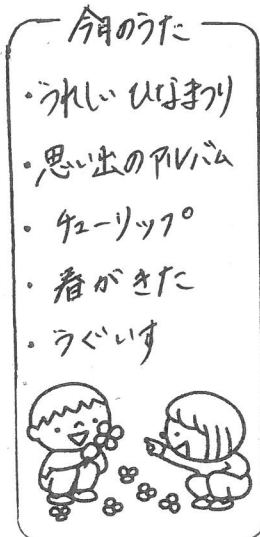 今月のうた
・うれしい ひなまつり
・思い出のアルバム
・チューリップ
・春がきた
・うぐいす